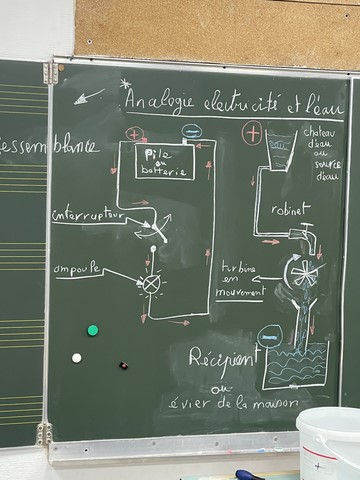 * Analogie electricité et l'eau
ressemblance
+
−
Pile
ou
batterie
interrupteur
ampoule
+
chateau
d'eau
ou
source
d'eau
robinet
turbine
en
mouvement
−
Récipient
ou
évier de la maison